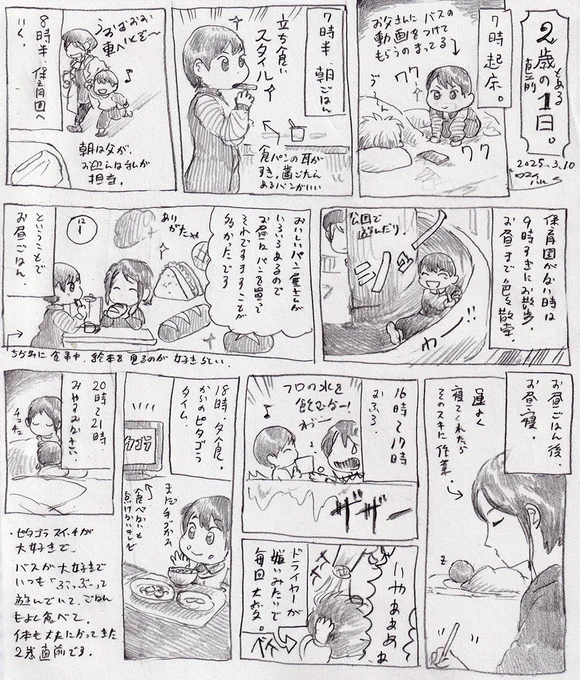 2歳の1日。
とある
直前
2025.3.10
7時起床。
お父さんに バスの
動画をつけて
もらうのまってる
ワク
ワク
7時半、朝ごはん
立ち食い
スタイル
食パンの耳が
すき。歯ごたえ
あるパンがいい
8時半、保育園へ
いく。
車へいくぞ〜
朝は父が、
お迎えは私が
担当。
保育園がない時は
9時すぎにお散歩。
お昼まで色々散策。
公園で
遊んだり!
シュッ
わー!!
おいしいパン屋さんが
いろいろあるので
お昼はパンを買って
それですますことが
多かったです
ありがたや
12
ということで
お昼ごはん。
ちなみに食事中、絵本を見るのが好きらしい。
お昼ごはん後、
お昼寝。
運よく
寝てくれたら
そのスキに作業。
z
16時〜17時
おふろ。
フロの水を
飲むなー!
ザザー
いやぁぁぁぁ
ドライヤーが
嫌いみたいで
毎回大変。
18時、夕食。
からのピタゴラ
タイム。
ピタゴラ
食べないと
また手づかみ
20時〜21時
おやすみなさい。
・ピタゴラスイッチが
大好きで、
バスが大好きで
いつも「ぶっぶ」って
遊んでいて、ごはん
もよく食べて、
体も大きくなってきた
2歳直前です。